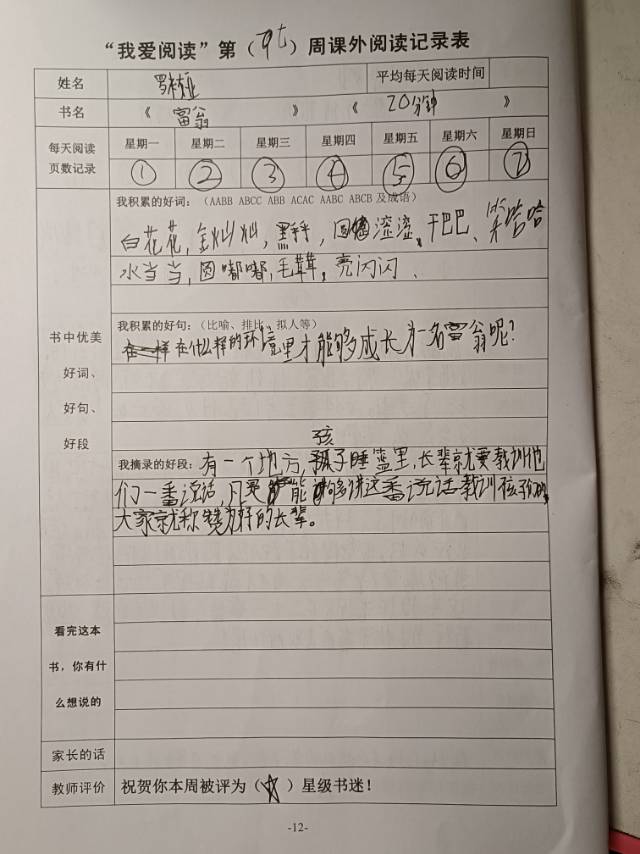 “我爱阅读”第（ ）周课外阅读记录表
姓名 平均每天阅读时间
书名 《 富翁 》 《 20分钟 》
每天阅读 星期一 星期二 星期三 星期四 星期五 星期六 星期日
页数记录 ① ② ③ ④ ⑤ ⑥ ⑦
我积累的好词：（AABB ABCC ABB ACAC AABC ABCB 及成语）
白花花，金灿灿，黑乎乎，圆溜溜，干巴巴、笑哈哈
水当当，圆嘟嘟，毛茸茸，亮闪闪、
书中优美
好词、
好句、
好段
我积累的好句：（比喻、排比、拟人等）
在什么样的环境里才能够成长为一名富翁呢？
孩
我摘录的好段：有一个地方，子睡篮里，长辈就要教训他
们一番说话，凡要能够讲这番说话教训孩子们的，
大家就称赞为好的长辈。
看完这本
书，你有什
么想说的
家长的话
教师评价 祝贺你本周被评为（ ）星级书迷！
-12-